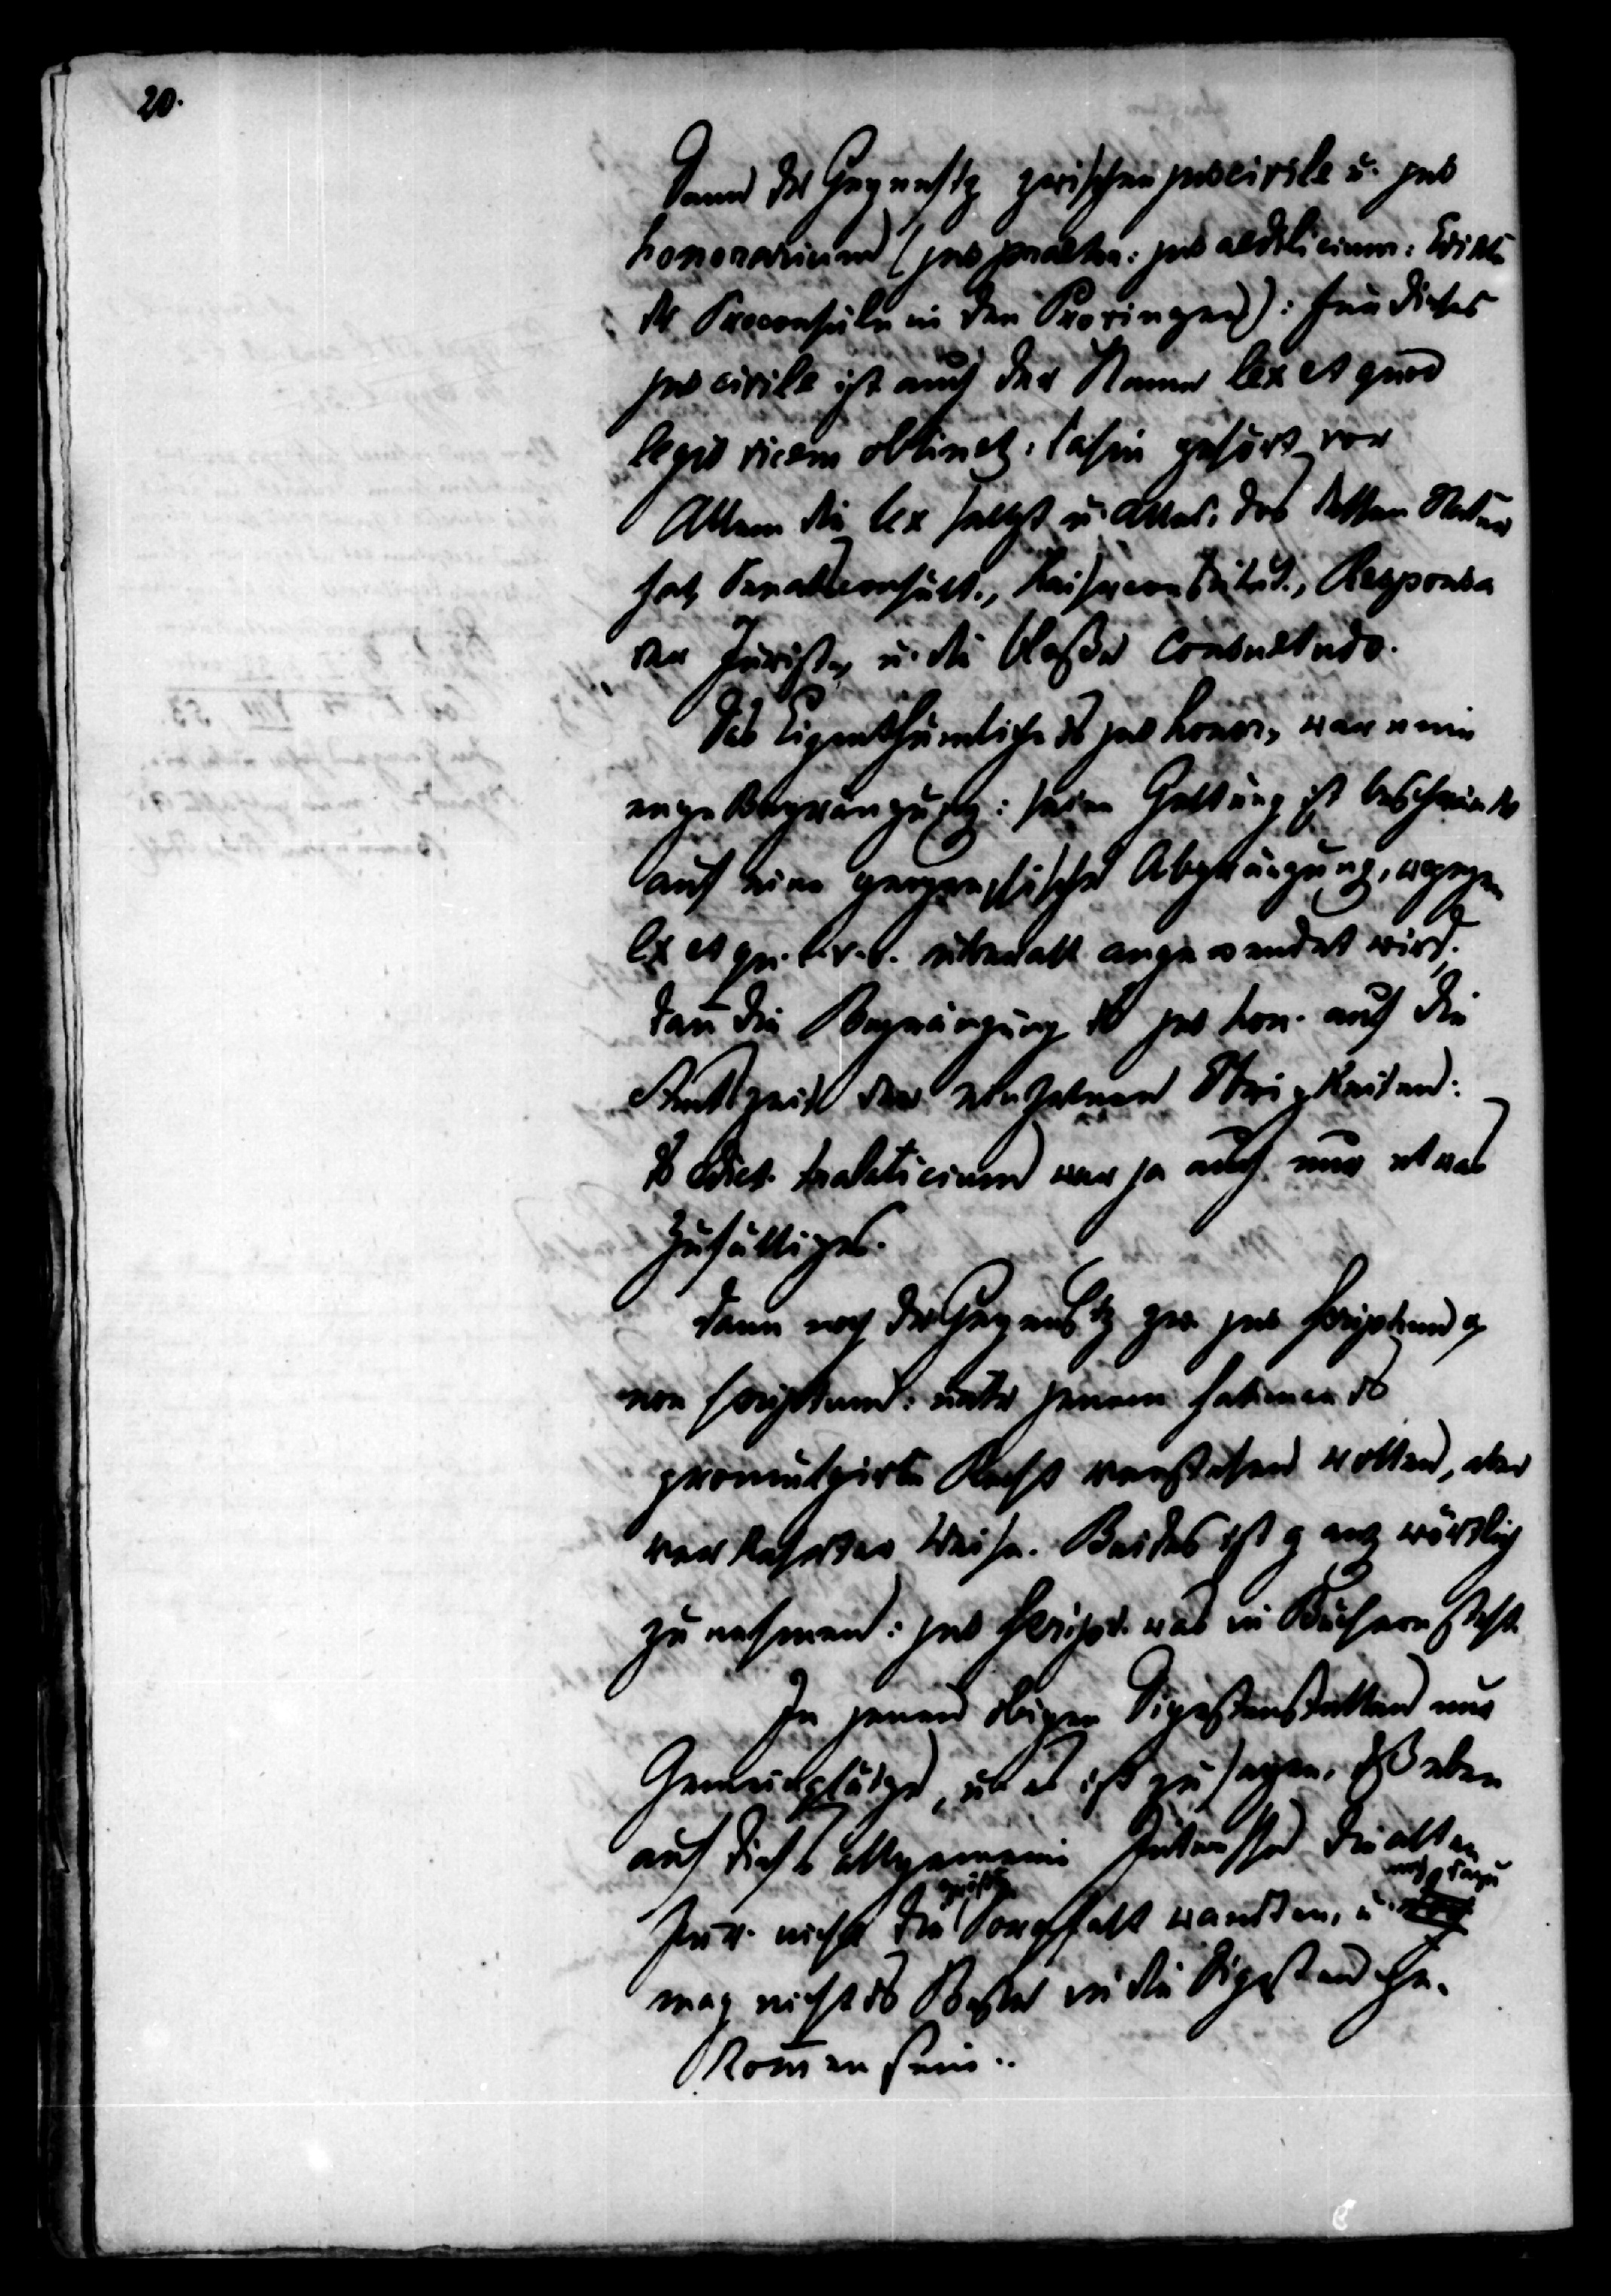 20.
Dann der Gegensatz zwischen jus civile u. jus
honorarium (jus praetor. jus aedilicium: Edikte
der Proconsuln in den Provinzen): für dieses
jus civile ist auch der Name lex et quod
legis vicem obtinet: dahin gehört vor
Allem die lex selbst u. alles, das dessen Natur
hat, Senatconsult., Kaiserconstitut., Responsa
der Juristen, u. die bloße Consuetudo.
Das Eigenthümliche des jus honor. war eine
enge Begränzung: seine Geltung ist beschränkt
auf eine geographische Abgränzung, wogegen
lex et qu. l. v. o. überall angewendet wird.
dann die Begränzung des jus hon. auf die
Amtszeit der einzelnen Obrigkeiten:
das Edict. tralaticium war ja auch nur etwas
Zufälliges.
Dann noch der Gegensatz zw. jus scriptum &
non scriptum: unter jenem hat man das
promulgirte Recht verstehen wollen, aber
verkehrter Weise. Beides ist ganz wörtlich
zu nehmen: jus script. was in Büchern steht.
In jenen obigen Digestenstellen nur
Gemeinplätze, u. es ist zu sagen, daß eben
auf dieses allgemeine Interesse die alten
Jur. nicht die größte Sorgfalt wandten, u. noch dazu
mag nicht das Beste in die Digesten ge-
kommen sein.